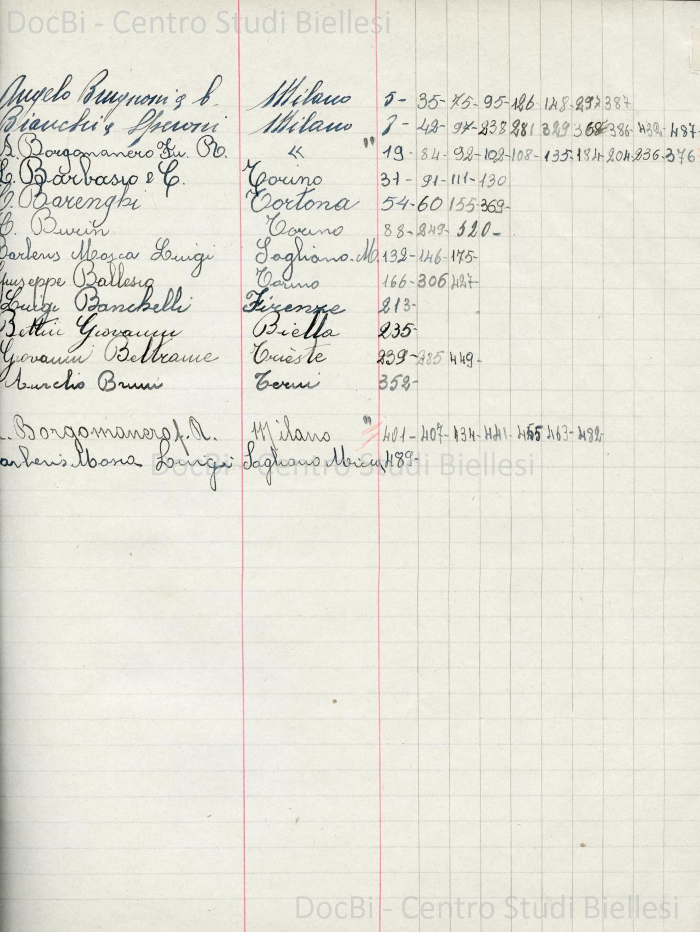 DocBi - Centro Studi Biellesi
Angelo Brugnoni & C. Milano 5- 35- 75- 95- 126 148- 297 387
Bianchi & Speroni Milano 7- 42- 97- 238 281 329 368- 386- 432- 487-
Borgomanero Fu. R. " 19- 84- 92- 102- 108- 135- 184- 204- 236- 376
Barbasio & C. Torino 31- 91- 111- 130
Barenghi Tortona 54- 60 155 369-
Burin Torino 88- 249- 320-
Barberis Mosca Luigi Sagliano. M. 132- 146- 175-
Giuseppe Ballesio Torino 166- 306 427-
Luigi Banchelli Firenze 213-
Bettin Giovanni Biella 235-
Giovanni Beltrame Trieste 239- 285 449-
Aurelio Bruni Terni 352-
Borgomanero f. R. Milano " 401- 407- 434- 441- 455 463- 482-
Barberis Mosca Luigi Sagliano Micca 489-
DocBi - Centro Studi Biellesi
DocBi - Centro Studi Biellesi